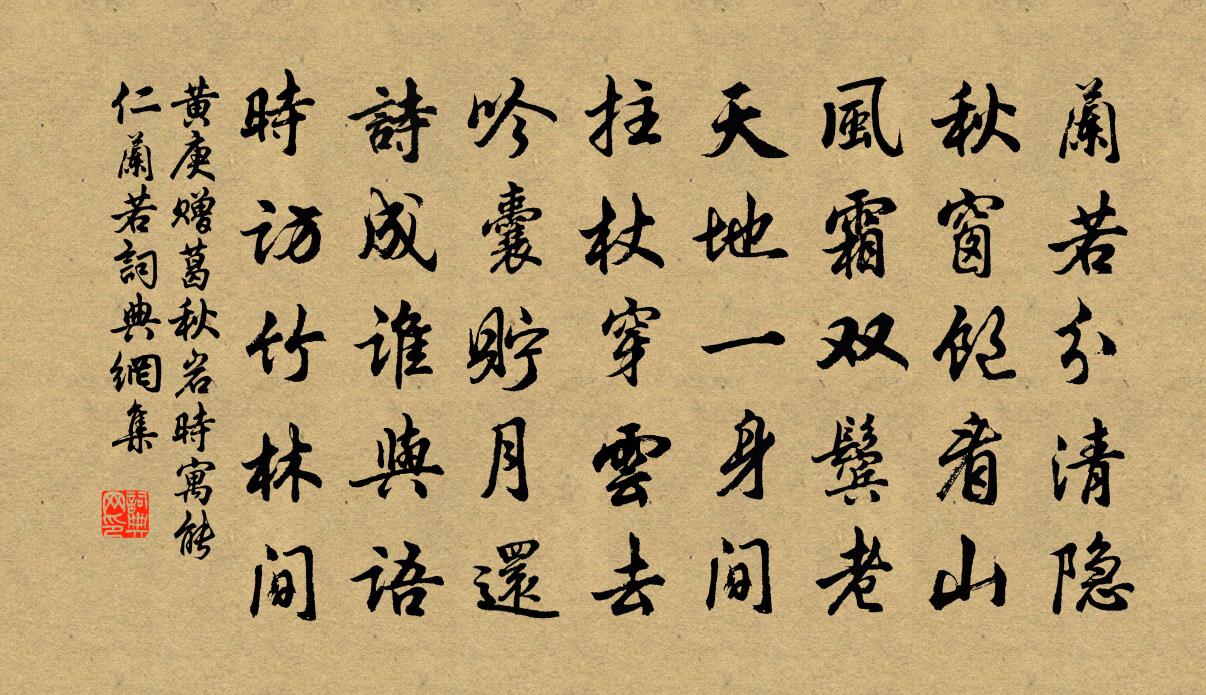 蘭若分清隐
秋窗飽看山
風霜双鬢老
天地一身间
拄杖穿雲去
吟囊貯月還
詩成誰與語
時訪竹林间
黄庚赠葛秋岩時寓能
仁蘭若詞典網集
詞典
网印